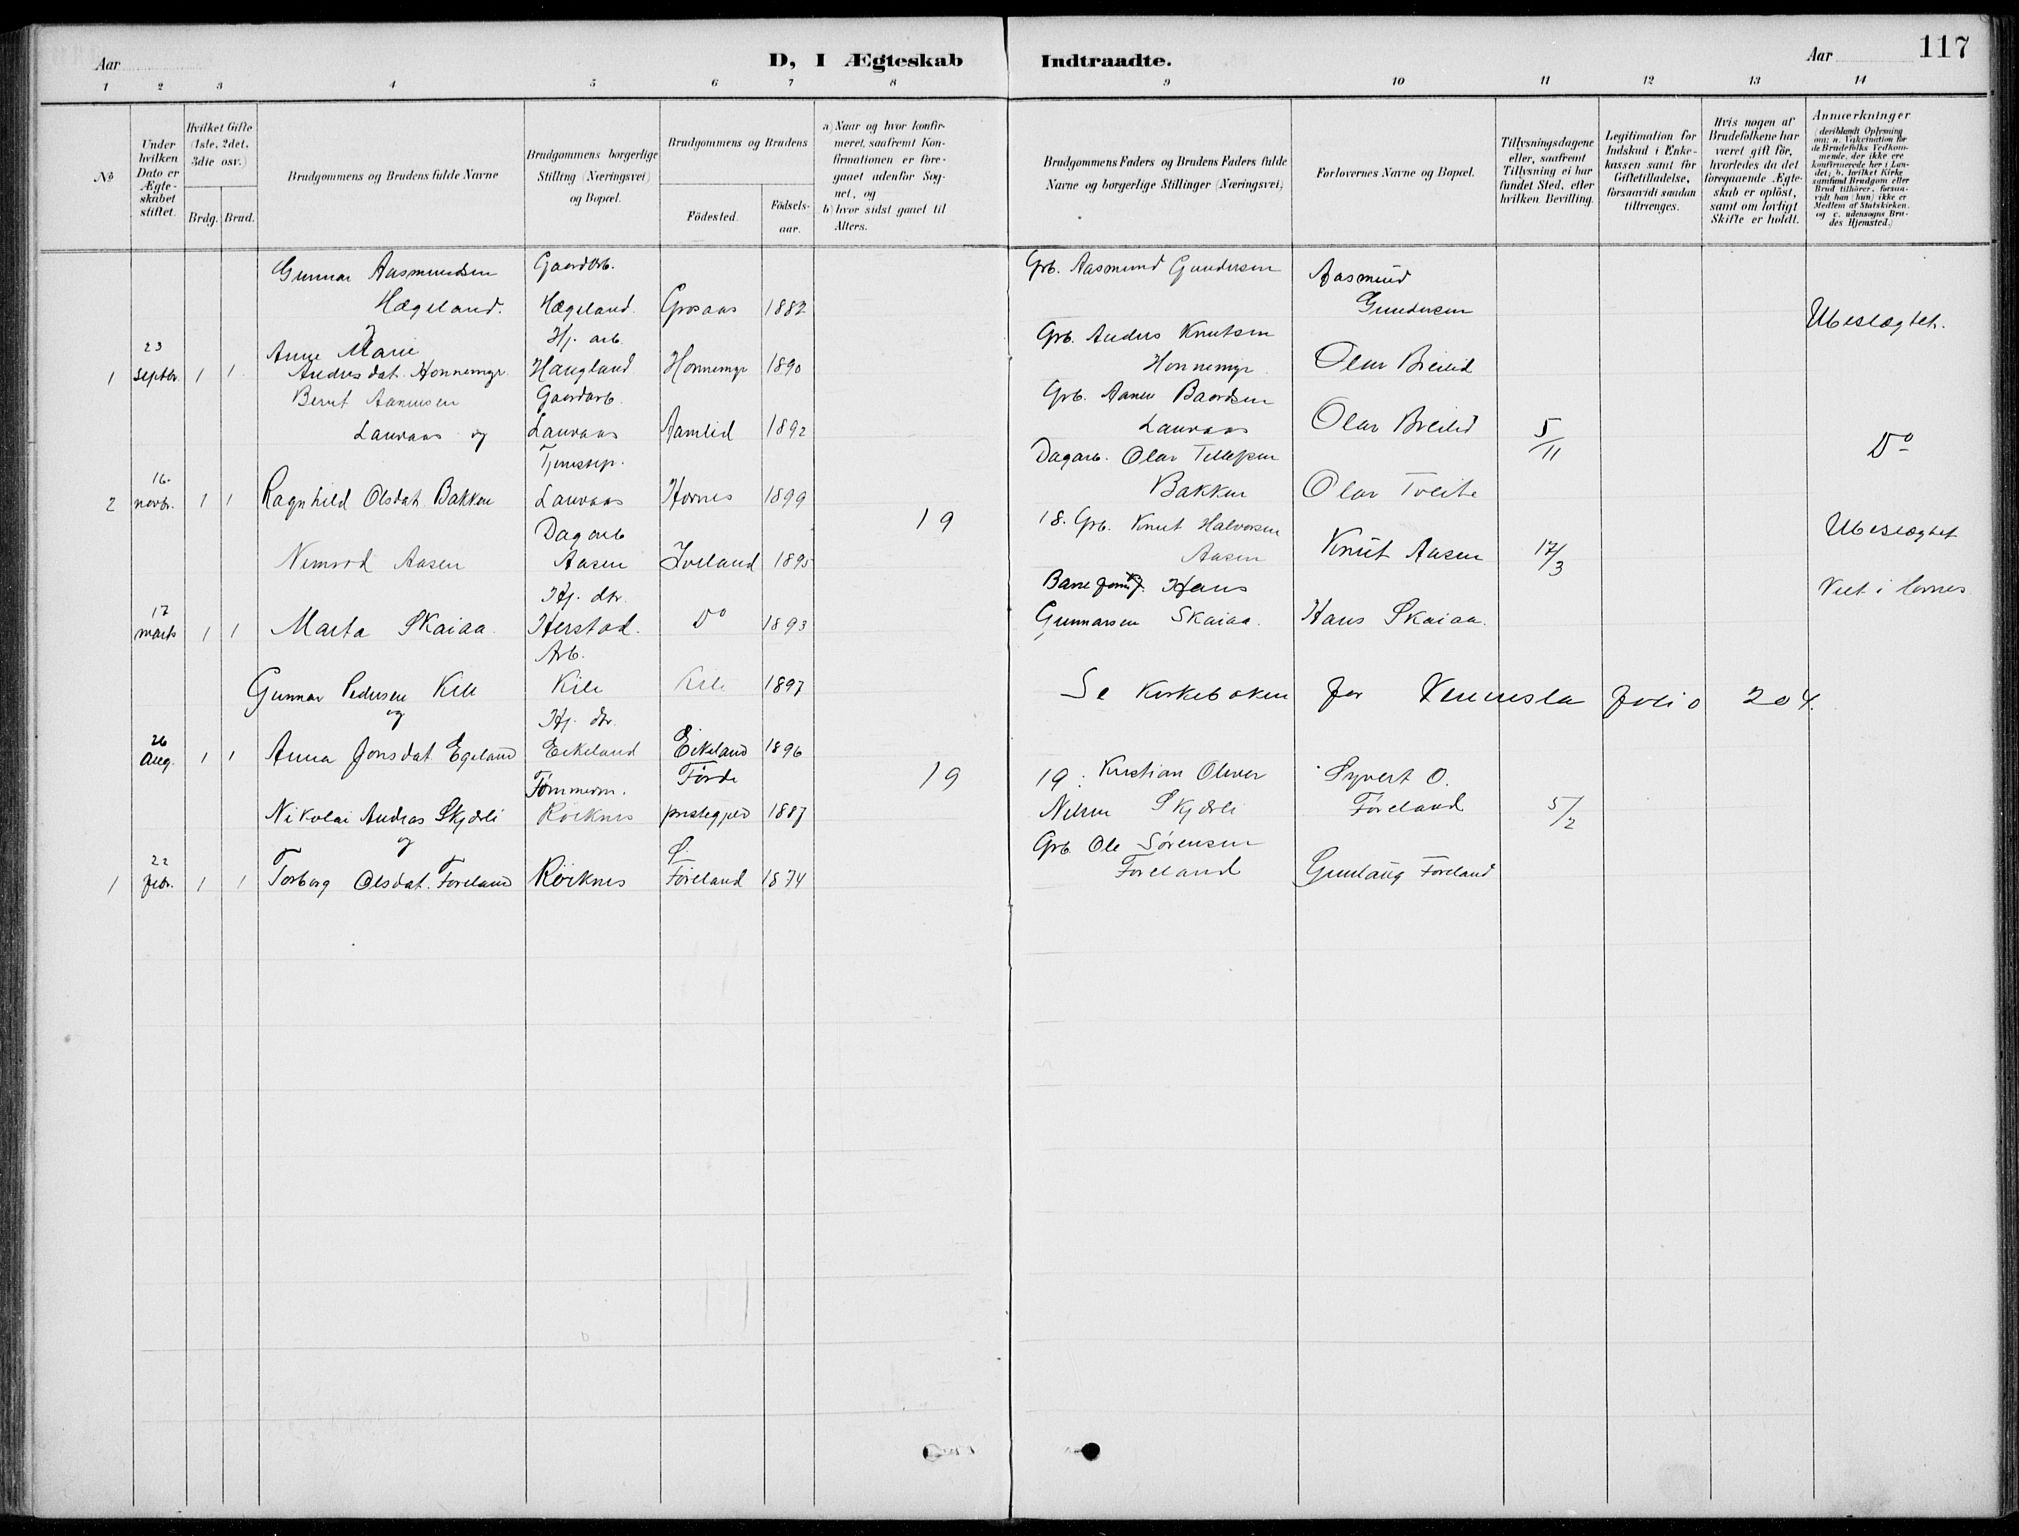 Aar
D, I Ægteskab Indtraadte.
Aar
117
1 2 3 4 5 6 7 8 9 10 11 12 13 14
No
Under hvilken Dato er Ægte-skabet stiftet.
Hvilket Gifte (1ste, 2det, 3die osv.)
Brdg. Brud.
Brudgommens og Brudens fulde Navne
Brudgommens borgerlige Stilling (Næringsvei) og Bopæl.
Brudgommens og Brudens
Födested.
Födsels-aar.
a) Naar og hvor konfir-meret, saafremt Kon-firmationen er fore-gaaet udenfor Sog-net, og
b) hvor sidst gaaet til Alters.
Brudgommens Faders og Brudens Faders fulde Navne og borgerlige Stillinger (Næringsvei)
Forlovernes Navne og Bopæl.
Tillysningsdagene eller, saafremt Tillysning ei har fundet Sted, efter hvilken Bevilling.
Legitimation for Indskud i Enke-kassen samt for Giftetilladelse, forsaavidt saadan tiltrænges.
Hvis nogen af Brudefolkene har været gift för, hvorledes da det foregaaende Ægte-skab er oplöst, samt om lovligt Skifte er holdt.
Anmærkninger (deriblandt Oplysning om: a. Vakcination for de Brudefolks Vedkom-mende, der ikke ere konfirmerede her i Lan-det; b. hvilket Kirke-samfund Brudgom eller Brud tilhörer, forsaa-vidt han (hun) ikke er Medlem af Statskirken, og c. udensogns Bru-des Hjemsted.)
Gunnar Aasmundsen Gaardarb. Grb. Aasmund Gundersen Aasmund
Hægeland. Hægeland. Grosaas 1882 Gundersen Ubeslægtet.
23 Anne Marie Hj. arb. Grb. Anders Knutsen
1 septbr. 1 1 Andersdat. Honnemyr Haugland Honnemyr 1890 Honnemyr Olav Breilid
Bernt Aanensen Gaardarb. Grb. Aanen Baardsen
Lauvaas og Lauvaas Aamlid 1892 Lauvaas Olav Breilid 5/11 Do
16 Tjenestep. Dagarb. Olav Tellefsen
2 novbr. 1 1 Ragnhild Olsdat. Bakken Lauvaas Hornes 1899 Bakken Olav Tveite
19 18.
Dagarb Grb. Knut Halvorsen Ubeslægtet
Nimrod Aasen Aasen Iveland 1895 Aasen Knut Aasen 17/3
17 Hj. dtr. Hans Viet i Hornes
marts 1 1 Marta Skaiaa Herstad. Do 1893 Gunnarsen Skaiaa. Hans Skaiaa.
Arb.
Gunnar Pedersen Kile Kile Kile 1897 Se Kirkeboken for Vennesla folio 204.
og Hj. dtr.
26 Aug. 1 1 Anna Jonsdat Egeland Eikeland Eikeland 1896
19 19.
Tømmerm. Førde Kristian Oliver Syvert O.
Nikolai Andreas Skjærli Röiknes prestegjeld 1887 Nilsen Skjærli Föreland 5/2
og Ø. Grb. Ole Sørensen
22
1 febr. 1 1 Torborg Olsdat. Foreland Röiknes Föreland 1874 Foreland Gunlaug Foreland